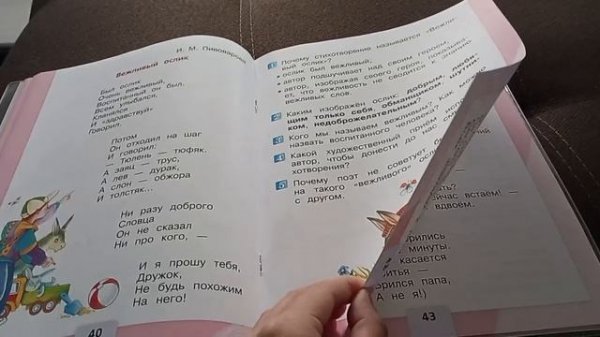 И. М. Пивоварова
Вежливый ослик
Был ослик
Очень вежливый,
Воспитанный он был,
Всем улыбался,
Кланялся
И «здравствуй»
Говорил.
Потом
Он отходил на шаг
И говорил:
— Тюлень — тюфяк,
А заяц — трус,
А лев — дурак,
А слон — обжора
И толстяк...
Ни разу доброго
Словца
Он не сказал
Ни про кого, —
И я прошу тебя,
Дружок,
Не будь похожим
На него!
40
1 Почему стихотворение называется «Вежли-
вый ослик»?
• ослик был вежливый,
• автор подшучивает над своим героем,
• автор, изображая своего героя, показыва-
ет, что вежливость не сводится к знанию
вежливых слов.
2 Каким изображён ослик: добрым, любя-
щим только себя, обманщиком, шутни-
ком, недоброжелательным?
3 Кого мы называем вежливым? Как можно
назвать воспитанного человека?
4 Какой художественный приём
автор, чтобы донести до нас смысл
хотворения?
5 Почему поэт не советует б
на такого «вежливого» осл
с другом.
ать?
ейчас встаем! —
вдвоём.
рились
минуты.
касается
итья —
орился папа,
А не я!)
43